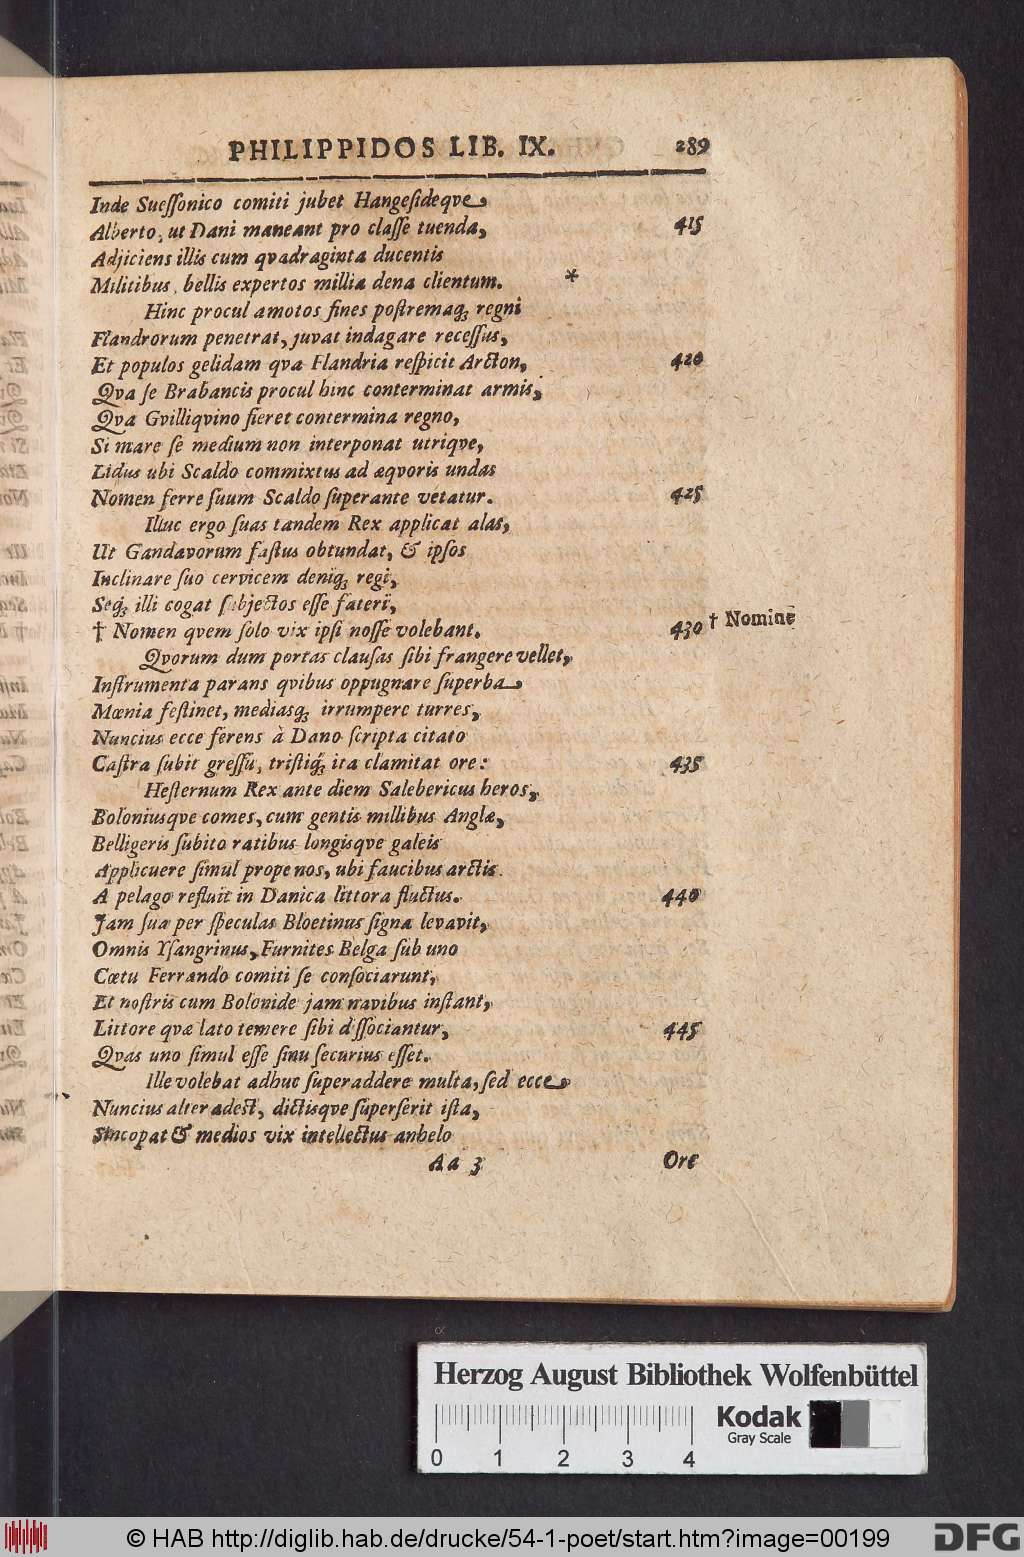 PHILIPPIDOS LIB. IX. 289
Inde Sueſſonico comiti jubet Hangeſideqve,
Alberto, ut Dani maneant pro claſſe tuenda, 415
Adjiciens illis cum qvadraginta ducentis
Militibus, bellis expertos millia dena clientum. *
Hinc procul amotos fines poſtremaq; regni
Flandrorum penetrat, juvat indagare receſſus,
Et populos gelidam qva Flandria reſpicit Arcton, 420
Qva ſe Brabancis procul hinc conterminat armis,
Qva Gvilliqvino fieret contermina regno,
Si mare ſe medium non interponat utriqve,
Lidus ubi Scaldo commixtus ad æqvoris undas
Nomen ferre ſuum Scaldo ſuperante vetatur. 425
Illuc ergo ſuas tandem Rex applicat alas,
Ut Gandavorum faſtus obtundat, & ipſos
Inclinare ſuo cervicem deniq; regi,
Seq; illi cogat ſubjectos eſſe fateri,
† Nomen qvem ſolo vix ipſi noſſe volebant. 430 † Nomine
Qvorum dum portas clauſas ſibi frangere vellet,
Inſtrumenta parans qvibus oppugnare ſuperba
Mœnia feſtinet, mediasq; irrumpere turres,
Nuncius ecce ferens à Dano ſcripta citato
Caſtra ſubit greſſu, triſtiq; ita clamitat ore: 435
Heſternum Rex ante diem Salebericus heros,
Boloniusqve comes, cum gentis millibus Anglæ,
Belligeris ſubito ratibus longisqve galeis
Applicuere ſimul prope nos, ubi faucibus arctis
A pelago refluit in Danica littora fluctus. 440
Jam ſua per ſpeculas Bloetinus ſigna levavit,
Omnis Yſangrinus, Furnites Belga ſub uno
Cœtu Ferrando comiti ſe conſociarunt,
Et noſtris cum Bolonide jam navibus inſtant,
Littore qvæ lato temere ſibi diſſociantur, 445
Qvas uno ſimul eſſe ſinu ſecurius eſſet.
Ille volebat adhuc ſuperaddere multa, ſed ecce
Nuncius alter adeſt, dictisqve ſuperſerit iſta,
Sincopat & medios vix intellectus anhelo
Aa 3 Ore
Herzog August Bibliothek Wolfenbüttel
0 1 2 3 4
Kodak
Gray Scale
© HAB http://diglib.hab.de/drucke/54-1-poet/start.htm?image=00199
DFG